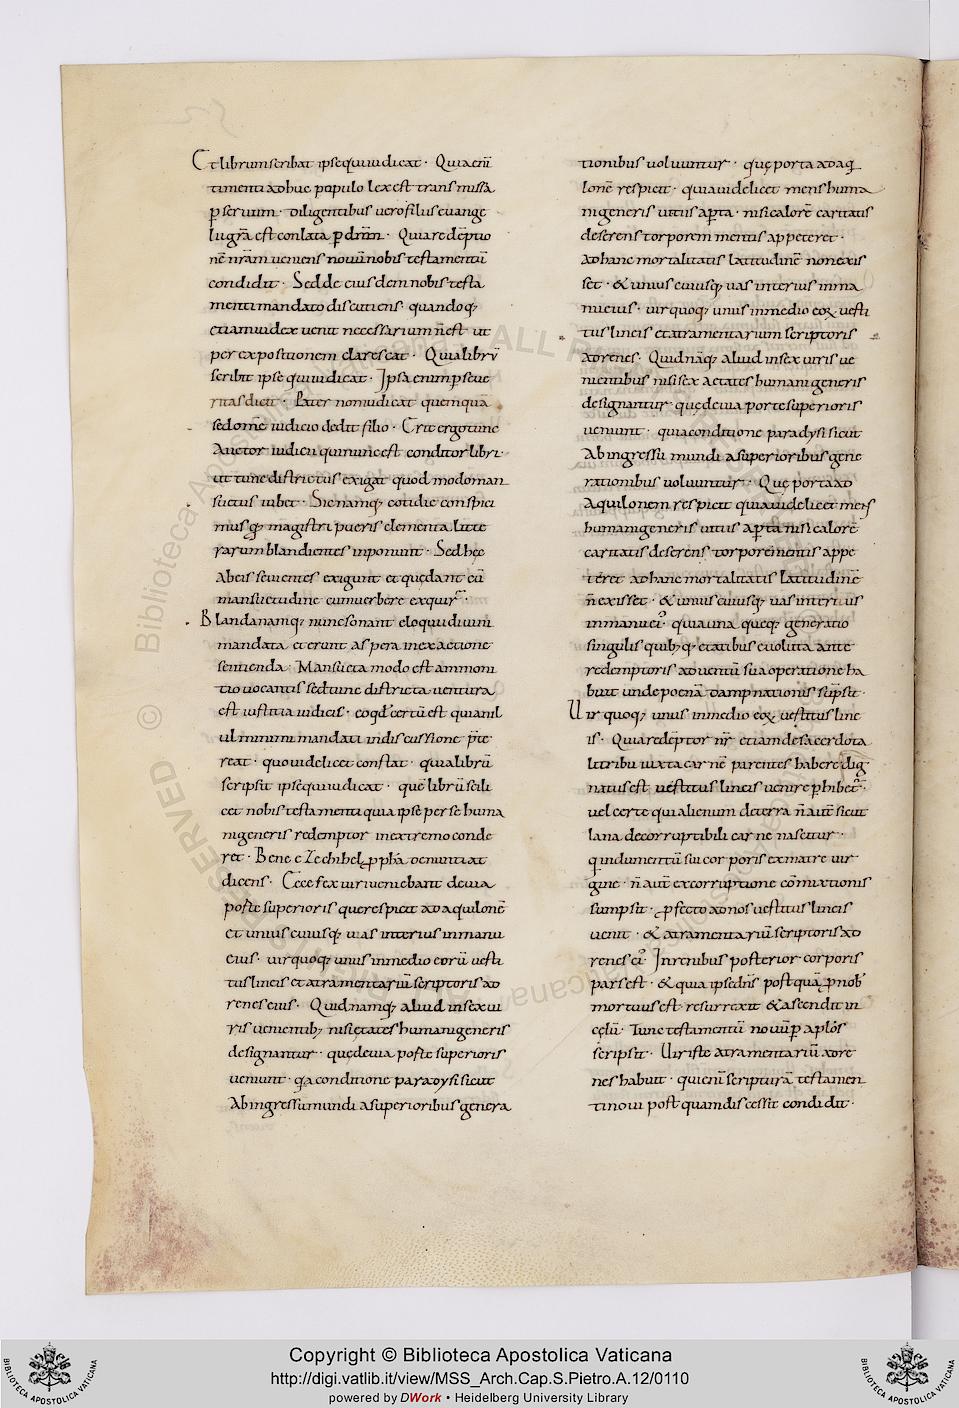 Et librum scribat ipse qui iudicat · Quia eni
timenti adhuc populo lex est transmissa
p seruum · diligentibus uero filiis euange
lii gra est conlata p dnm · Quia redeptio
ne nram ueniens nouu nobis testamentu
condidit · Sed de eiusdem nobis testa
menti mandato discutiens · quandoq;
etiam iudex uenit necessarium n est ut
per expositionem clarescat · Quia libru
scribit ipse qui iudicat · Ipsa enim p se ue
ritas dicit · Pater non iudicat quemqua
sed omne iudicio dedit filio · Erit ergo tunc
Auctor iudicii qui nunc est conditor libri ·
ut tunc districtus exigat quod modo man
suetus iubet · Sic namq; cotidie conspici
mus q; magistri pueris elementa litte
rarum blandientes inponunt · Sed hec
Ab eis seuientes exigunt et que dant cu
mansuetudine cum uerbere exquir ·
Blanda namq; nunc sonant eloquii diuini
mandata et erunt aspera in exactione
sentienda · Mansueta modo est ammoni
tio uocantis sed tunc districta uentura
est iustitia iudicis · eo qd certu est quia nil
ul minimi mandati indiscussione pte
reat · quo uidelicet constat · quia libru
scripsit ipse qui iudicat · que libru scili
cet nobis testamenti quia ipse per se huma
ni generis redemptor in extremo conde
ret · Bene ezechihel ppha denuntiat
dicens · Ecce sex uiri ueniebant de uia
poste superioris que respicit ad aquilone
et unius cuiusq; uas interius in manu
eius · uir quoq; unus in medio eoru uesti
tus lineis et atramentariu scriptoris ad
renes eius · Quid namq; aliud in sex ui
ris uenientib; nisi etates humani generis
designantur · que de uia poste superioris
ueniunt · qa conditione paradysi sicut
Ab ingressu mundi a superioribus genera
tionibus uoluuntur · que porta ad aq
lone respicit · quia uidelicet mens huma
ni generis uitiis apta · nisi calore caritatis
deserens torporem mentis appeteret ·
ad hanc mortalitatis latitudine non exis
set · & unius cuiusq; uas interius in ma
nu eius · uir quoq; unus in medio eox uesti
tus lineis et atramentarium scriptoris
ad renes · Quid naq; aliud in sex uiris ue
nientibus nisi sex aetates humani generis
designantur · que de uia porte superioris
ueniunt · quia conditione paradysi sicut
Ab ingressu mundi a superioribus gene
rationibus uoluuntur · Que porta ad
Aquilonem respicit quia uidelicet mens
humani generis uitiis apta nisi calore
caritatis deserens torpore mentis appe
teret ad hanc mortalitatis latitudine
n exisset · & unius cuiusq; uas interius
in manu ei · quia una queq; generatio
singulis quib;q; etatibus euoluta ante
redemptoris aduentu sua operatione ha
buit unde poena dampnationis supsit ·
Uir quoq; unus in medio eox uestitus line
is · Quia redeptor nr etiam de sacerdota
li tribu iuxta carne parentes habere dig
natus est uestitus lineis uenire phibet ·
uel certe quia linum de terra n aut sicut
lana de corruptibili carne nascitur ·
q indumentu sui corporis ex matre uir
gine · n aut ex corruptione comixtionis
sumpsit · pfecto ad nos uestitus lineis
uenit · & atramentariu scriptoris ad
renes ei · In renibus posterior corporis
pars est · & qui ipse dns post qua p nob
mortuus est resurrexit & ascendit in
celu · Tunc testamentu nouu p aplos
scripsit · Uir iste atramentariu ad re
nes habuit · qui eni scriptura testamen
ti noui postquam discessit condidit ·
Copyright © Biblioteca Apostolica Vaticana
http://digi.vatlib.it/view/MSS_Arch.Cap.S.Pietro.A.12/0110
powered by DWork • Heidelberg University Library